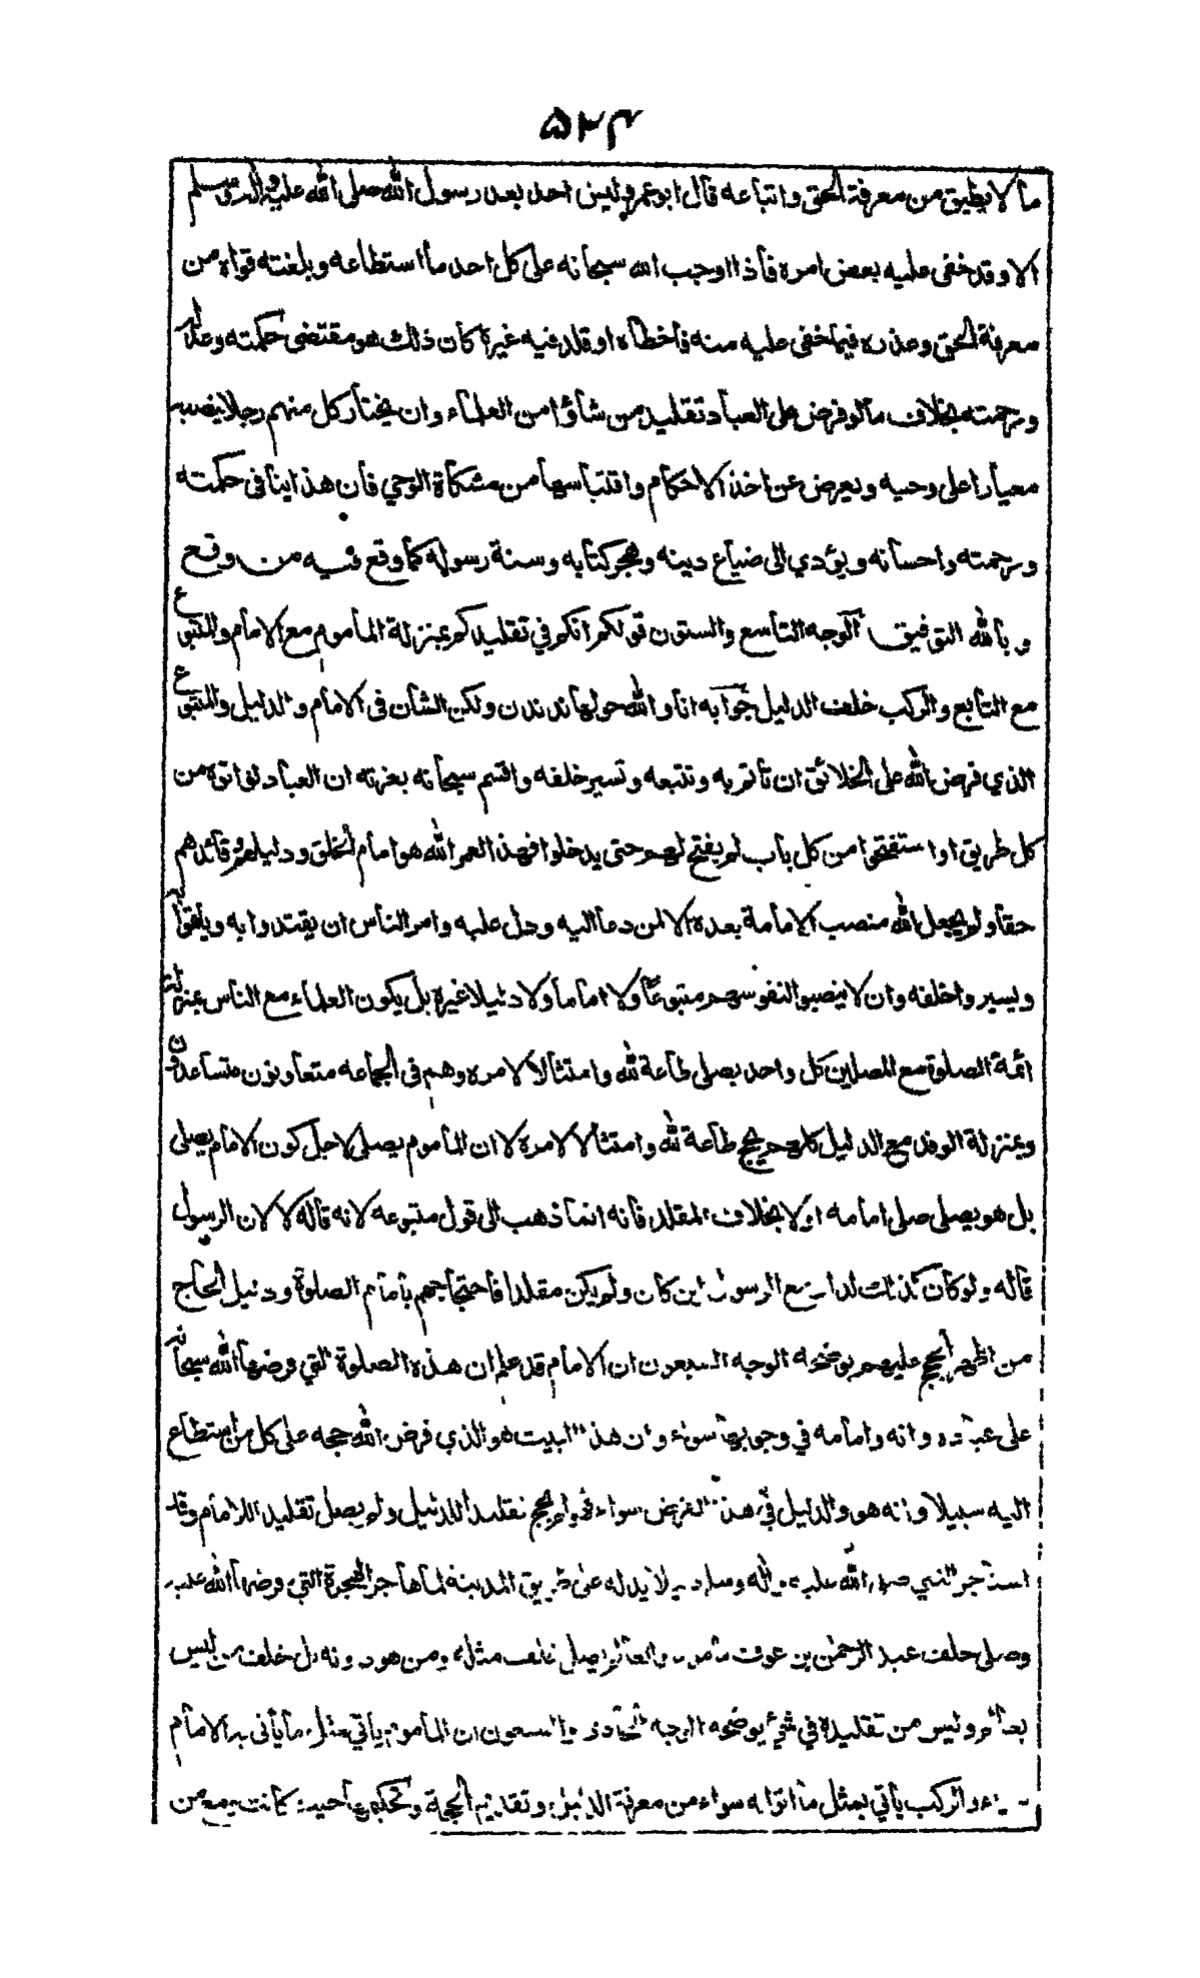 ۵۲۴
ما لا يطيق من معرفة الحق واتباعه قال ابو عمر وليس احد بعد رسول الله صلى الله عليه واله وسلم
الا وقد خفى عليه بعض امره فاذا اوجب الله سبحانه على كل احد ما استطاعه وبلغته قواه من
معرفة الحق وعذره فيما خفى عليه منه فاخطأه او قلد فيه غيره كان ذلك هو مقتضى حكمته وعدله
ورحمته بخلاف ما لو فرض على العباد تقليد من شاؤا من العلماء وان يختار كل منهم رجلا ينصبه
معيارا على وحيه ويعرض عن اخذ الاحكام واقتباسها من مشكاة الوحي فان هذا ينافى حكمته
ورحمته واحسانه ويؤدي الى ضياع دينه وهجر كتابه وسنة رسوله كما وقع فيه من وقع
وبالله التوفيق الوجه التاسع والستون قولكم انكم في تقليدكم بمنزلة الماموم مع الامام والمتبوع
مع التابع والركب خلف الدليل جوابه انا والله حولها ندندن ولكن الشان فى الامام والدليل والمتبوع
الذي فرض الله على الخلائق ان تاتم به وتتبعه وتسير خلفه واقسم سبحانه بعزته ان العباد لو اتوه من
كل طريق او استفتحوا من كل باب لم يفتح لهم حتى يدخلوا فهذا لعمر الله هو امام الخلق ودليلهم وقائدهم
حقا ولم يجعل الله منصب الامامة بعده الا لمن دعا اليه ودل عليه وامر الناس ان يقتدوا به وياتموا به
ويسيروا خلفه وان لا ينصبوا لنفوسهم متبوعا ولا اماما ولا دليلا غيره بل يكون العلماء مع الناس بمنزلة
ائمة الصلوة مع المصلين كل واحد يصلى طاعة لله وامتثالا لامره وهم فى الجماعه متعاونون متساعدون
وبمنزلة الوفد مع الدليل كلهم يحج طاعة لله وامتثالا لامره لا ان الماموم يصلى لاجل كون الامام يصلى
بل هو يصلى صلى امامه او لا بخلاف المقلد فانه انما ذهب الى قول متبوعه لانه قاله لا لان الرسول
قاله ولو كان كذلك لدار مع الرسول اين كان ولم يكن مقلدا فاحتجاجهم بامام الصلوة ودليل الحاج
من اظهر الحجج عليهم يوضحه الوجه السبعون ان الامام قد علم ان هذه الصلوة التي فرضها الله سبحانه
على عباده وانه وامامه في وجوبها سواء وان هذا البيت هو الذي فرض الله حجه على كل من استطاع
اليه سبيلا وانه هو والدليل في هذا الفرض سواء فهو لم يحج تقليدا للدليل ولم يصل تقليدا للامام وقد
استاجر النبي صلى الله عليه واله وسلم دليلا يدله على طريق المدينة لما هاجر الهجرة التي فرضها الله عليه
وصلى خلف عبد الرحمن بن عوف ماموما والعالم يصلى خلف مثله ومن هو دونه بل خلف من ليس
بعالم وليس من تقليده في شيء يوضحه الوجه الحادي والسبعون ان الماموم ياتي بمثل ما ياتى به الامام
سواء والركب ياتي بمثل ما اتوا به سواء من معرفة الدليل وتقديم الحجة وتحكيمها حيث كانت ومع من